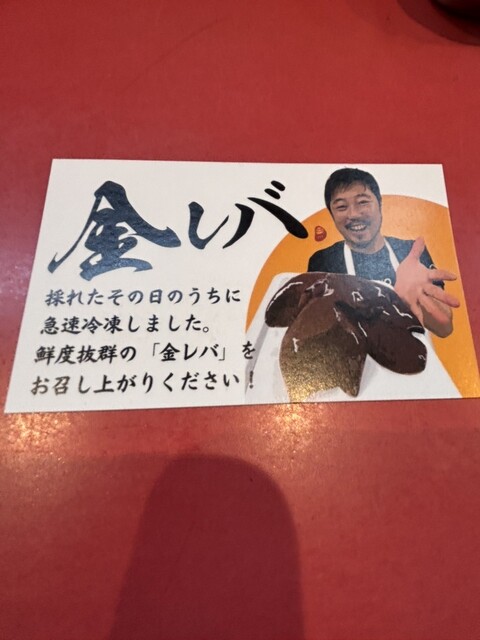 金レバ
採れたその日のうちに
急速冷凍しました。
鮮度抜群の「金レバ」を
お召し上がりください！